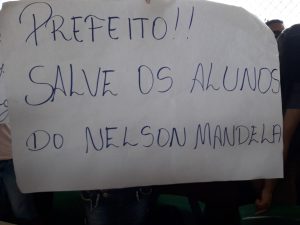 PREFEITO!!
SALVE OS ALUNOS
DO NELSON MANDELA